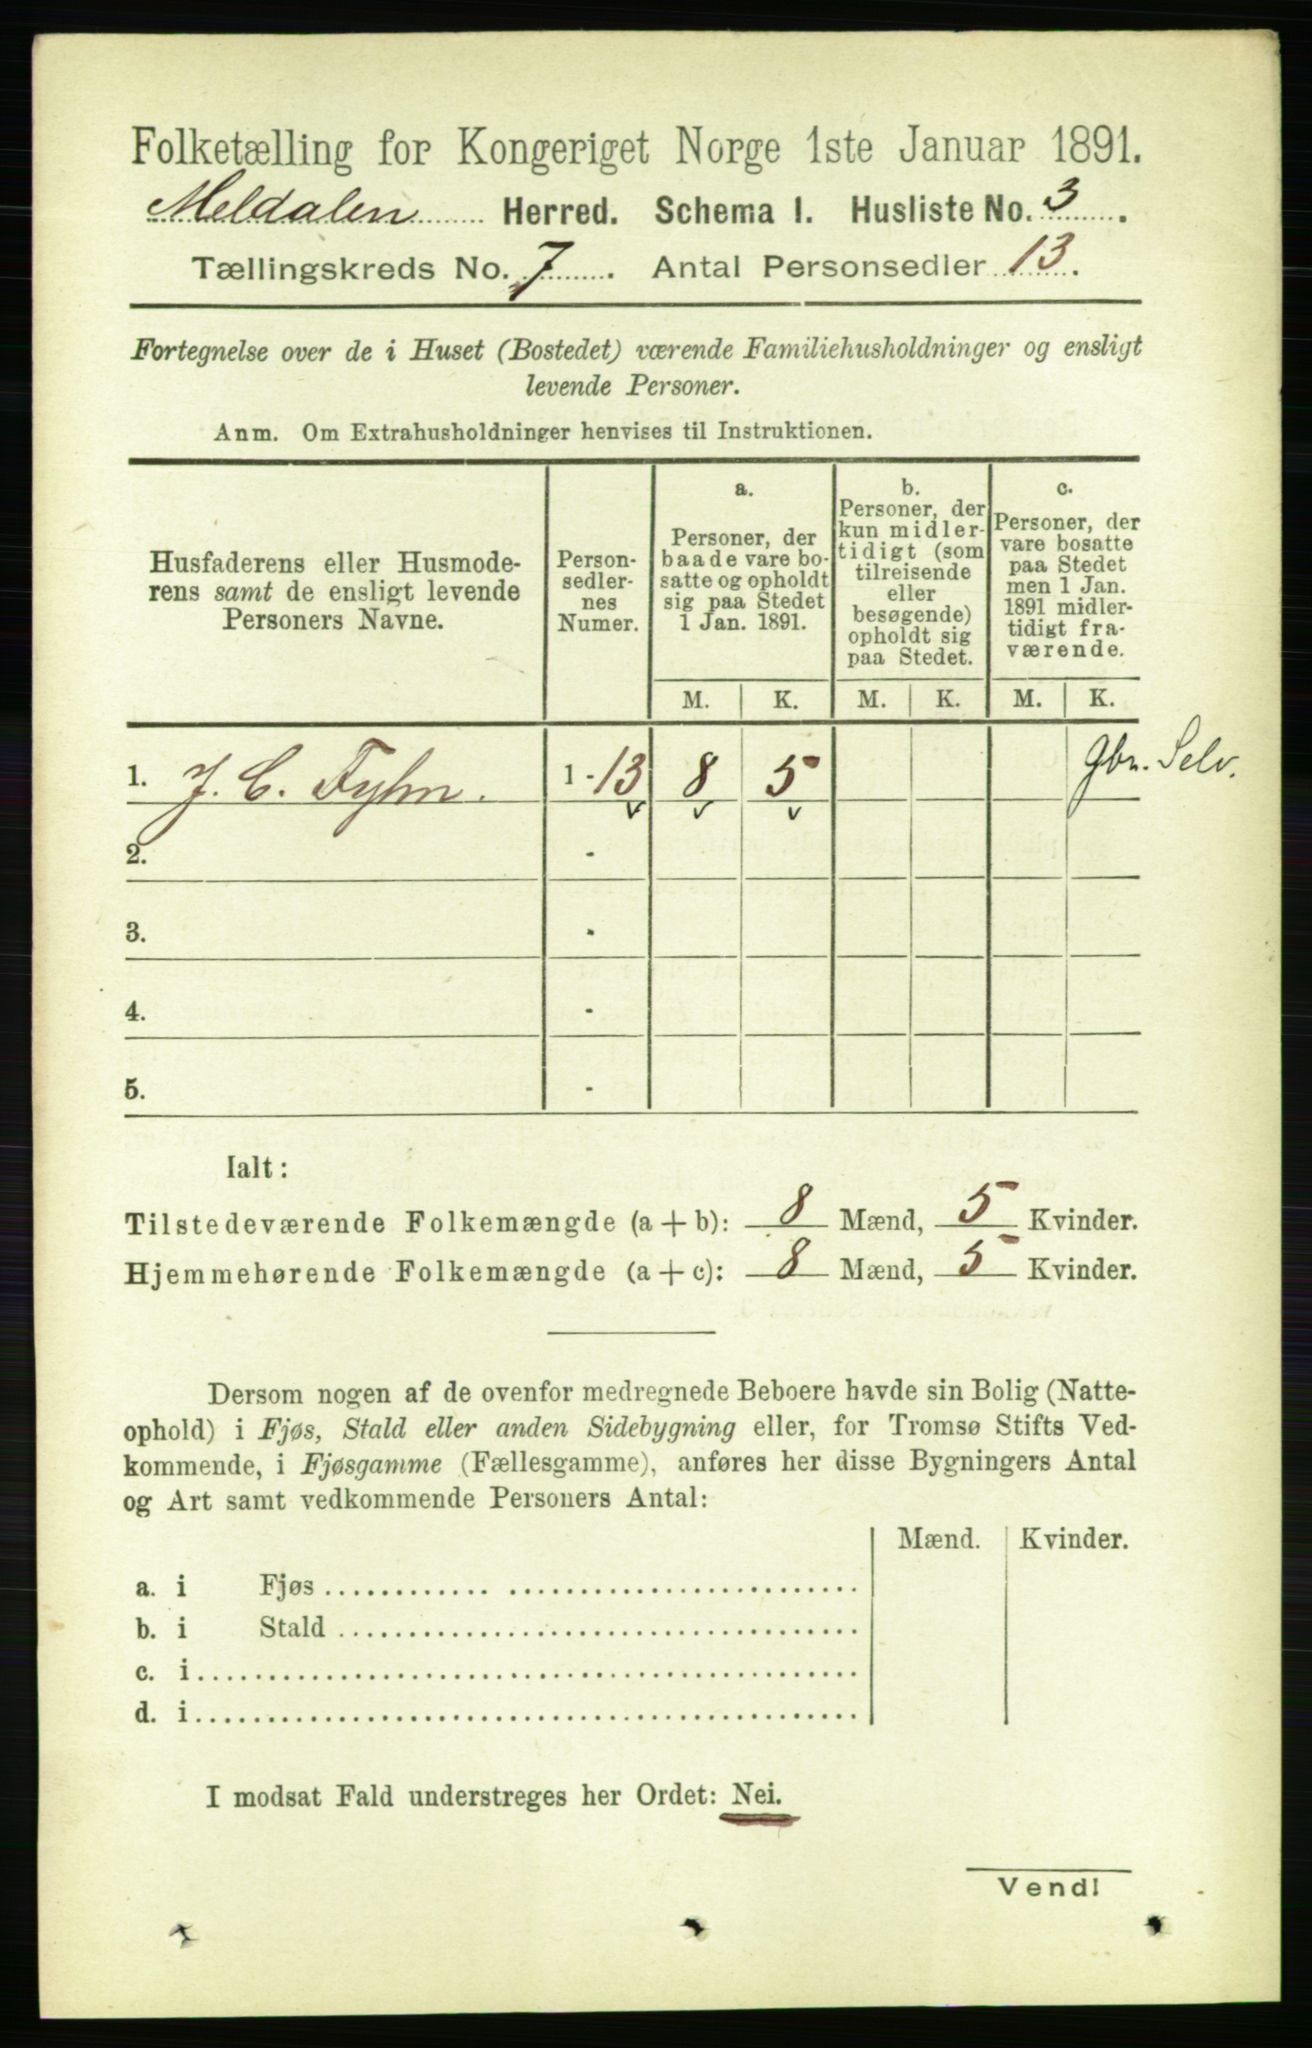 Folketælling for Kongeriget Norge 1ste Januar 1891.
Meldalen Herred. Schema I. Husliste No. 3.
Tællingskreds No. 7. Antal Personsedler 13.
Fortegnelse over de i Huset (Bostedet) værende Familiehusholdninger og ensligt
levende Personer.
Anm. Om Extrahusholdninger henvises til Instruktionen.
Husfaderens eller Husmode-
rens samt de ensligt levende
Personers Navne.
Person-
sedler-
nes
Numer.
a.
Personer, der
baade vare bo-
satte og opholdt
sig paa Stedet
1 Jan. 1891.
b.
Personer, der
kun midler-
tidigt (som
tilreisende
eller
besøgende)
opholdt sig
paa Stedet.
c.
Personer, der
vare bosatte
paa Stedet
men 1 Jan.
1891 midler-
tidigt fra-
værende.
M. K. M. K. M. K.
1. J. C. Fyhn. 1-13 8 5 Gbr. Selv.
2. -
3. -
4. -
5. -
Ialt:
Tilstedeværende Folkemængde (a+b): 8 Mænd, 5 Kvinder.
Hjemmehørende Folkemængde (a+c): 8 Mænd, 5 Kvinder.
Dersom nogen af de ovenfor medregnede Beboere havde sin Bolig (Natte-
ophold) i Fjøs, Stald eller anden Sidebygning eller, for Tromsø Stifts Ved-
kommende, i Fjøsgamme (Fællesgamme), anføres her disse Bygningers Antal
og Art samt vedkommende Personers Antal:
Mænd. Kvinder.
a. i Fjøs
b. i Stald
c. i
d. i
I modsat Fald understreges her Ordet: Nei.
Vend!